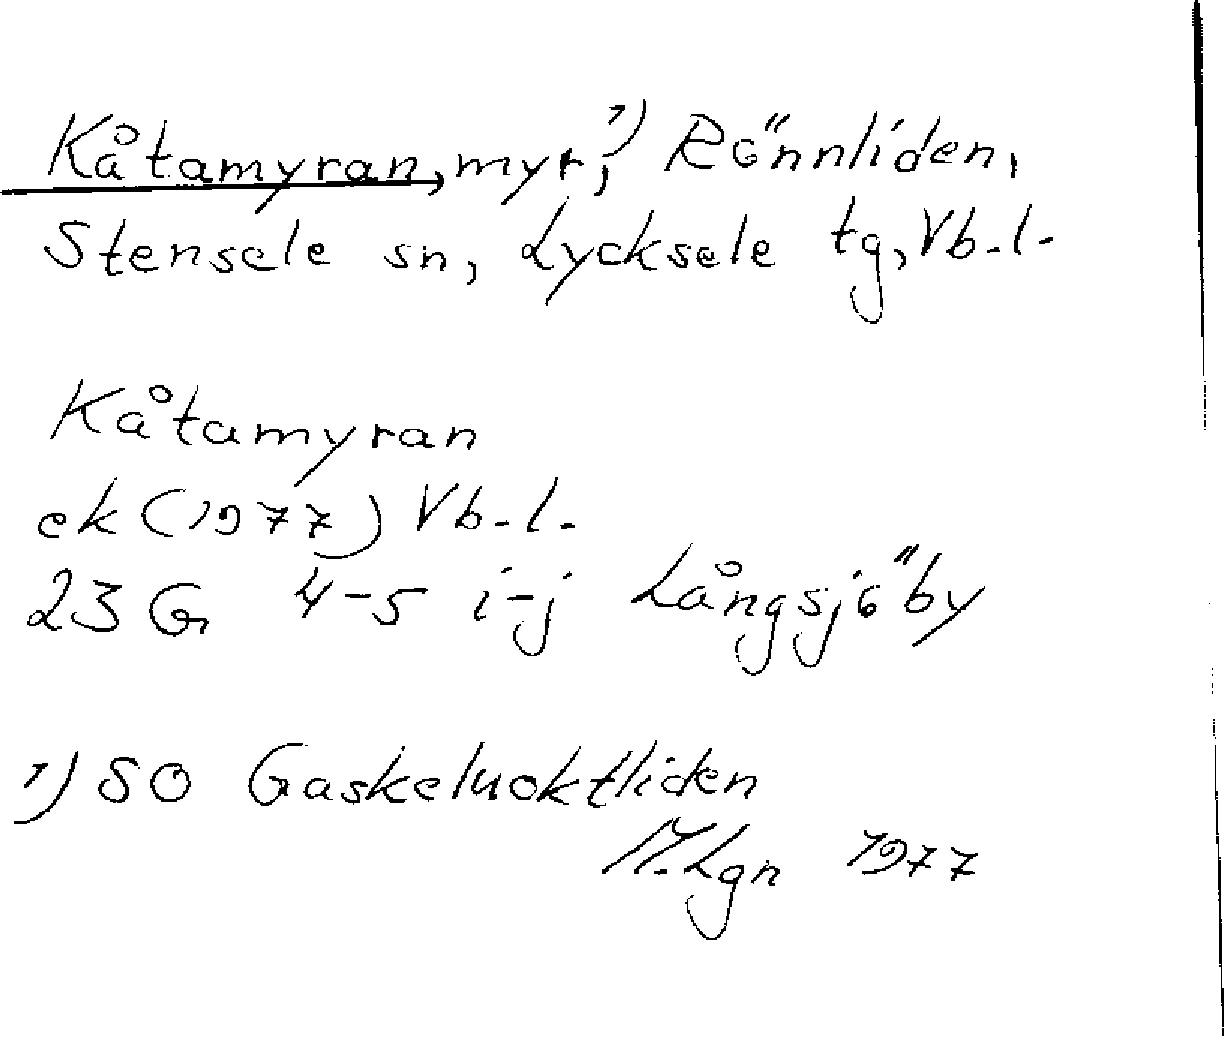 Kåtamyran, myr,¹⁾ Rönnliden,
Stensele sn, Lycksele tg, Vb-l-
Kåtamyran
ek (1977) Vb-l-
23 G 4-5 i-j Långsjöby
1) SO Gaskeluoktliden
M.Lgn 1977